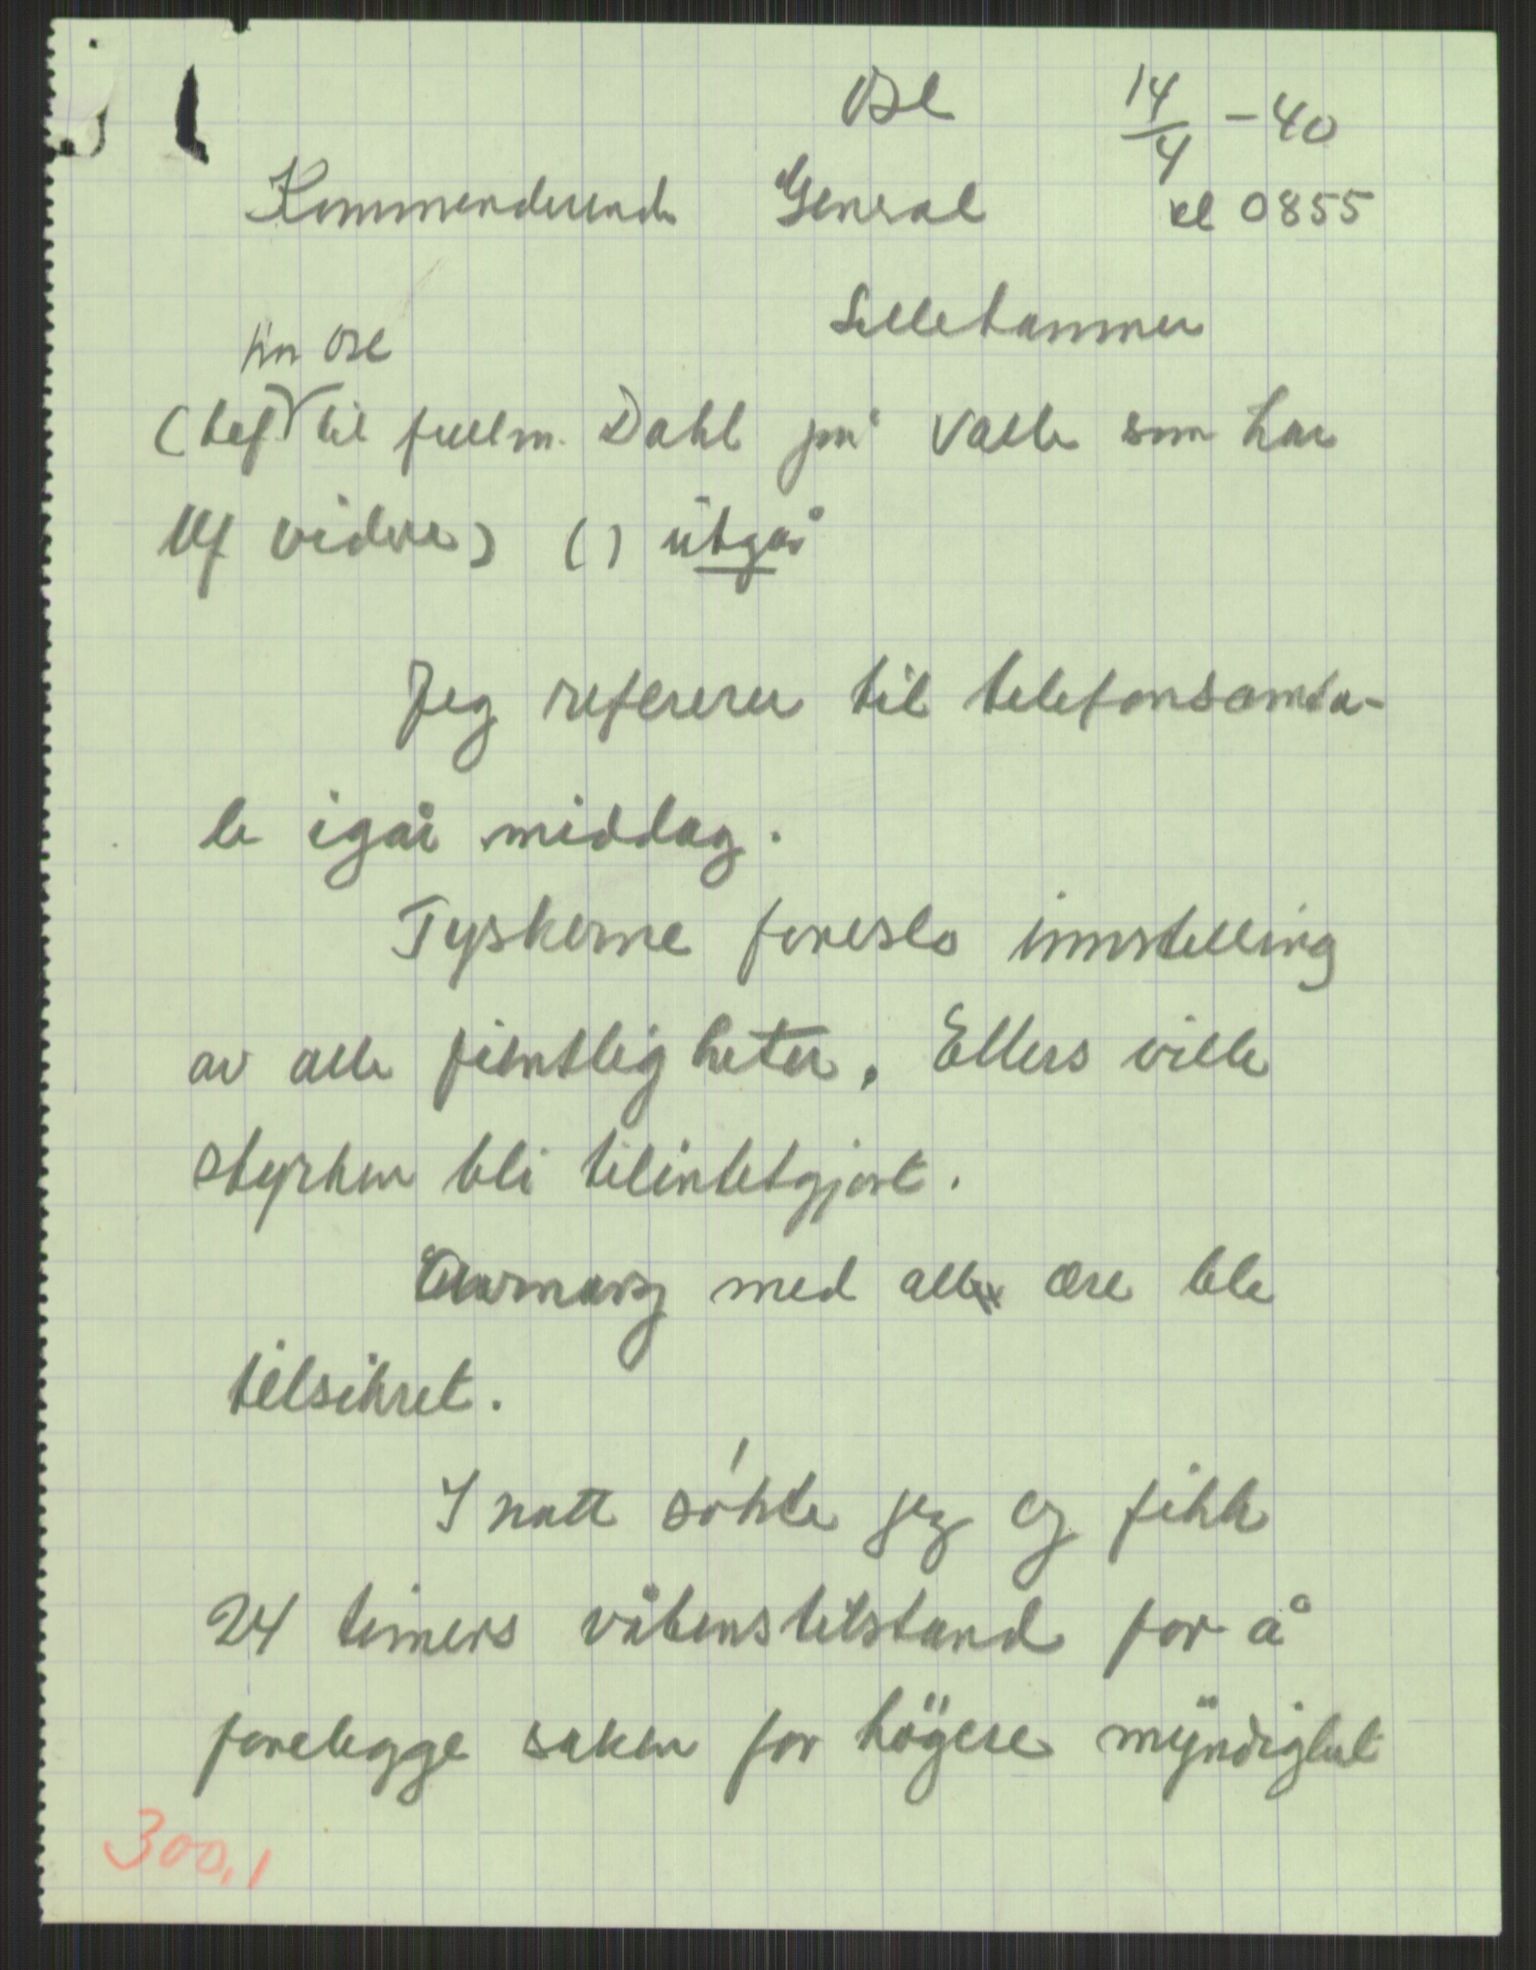 14/4 - 40
Kommanderende General kl 0855
Lillehammer
(tlf til fullm. Dahl på Valle som har
tlf videre) () utgår
Jeg refererer til telefonsamta-
le igår middag.
Tyskerne foreslo innstelling
av alle fientligheter. Ellers ville
styrken bli tilintetgjort.
med all ære ble
tilsikret.
I natt søkte jeg og fikk
24 timers våbenstilstand for å
forelegge saken for högere myndighet
300,1